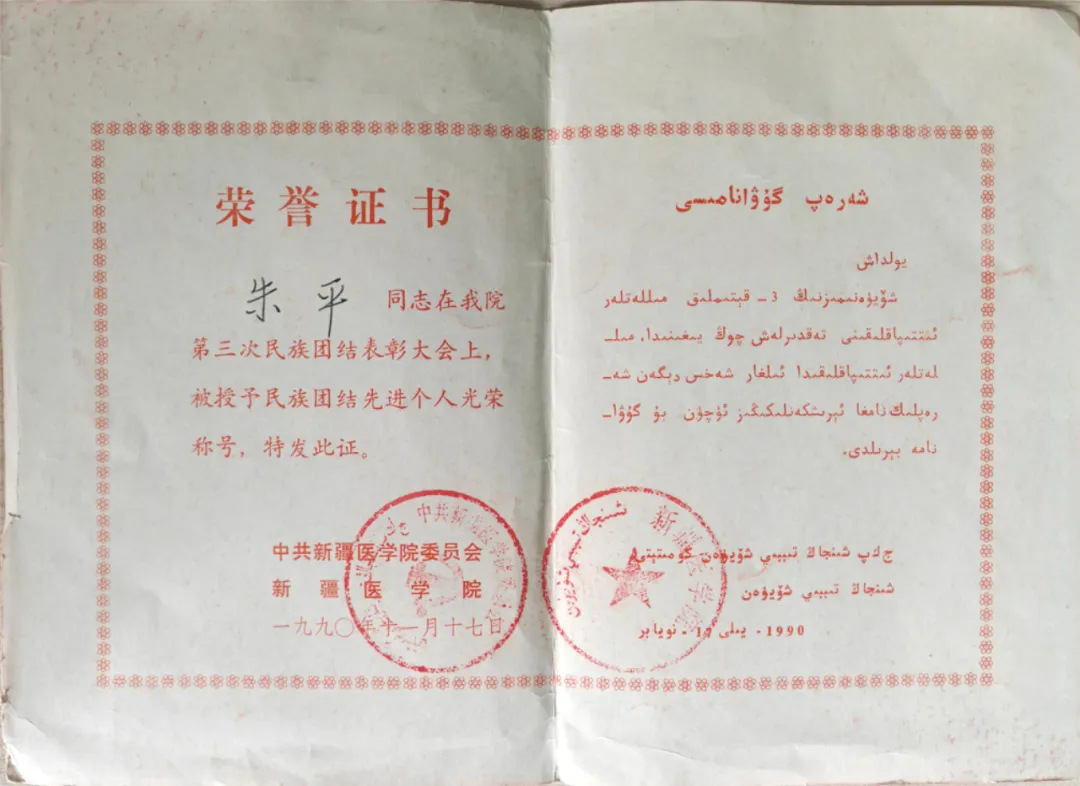 荣誉证书
朱平 同志在我院
第三次民族团结表彰大会上，
被授予民族团结先进个人光荣
称号，特发此证。
中共新疆医学院委员会
新疆医学院
一九九〇年十一月十七日
شەرەپ گۇۋانامىسى
يولداش
شۆيۈەنىمىزنىڭ 3 - قېتىملىق مىللەتلەر
ئىتتىپاقلىقىنى تەقدىرلەش چوڭ يىغىنىدا، مىل‍-
لەتلەر ئىتتىپاقلىقىدا ئىلغار شەخس دېگەن شە-
رەپلىك نامغا ئېرىشكەنلىكىڭىز ئۈچۈن بۇ گۇۋا-
نامە بېرىلدى.
ج ك پ شىنجاڭ تىببىي شۆيۈەن كومىتېتى
شىنجاڭ تىببىي شۆيۈەن
1990 - يىلى 17 - نويابر
新疆医学院